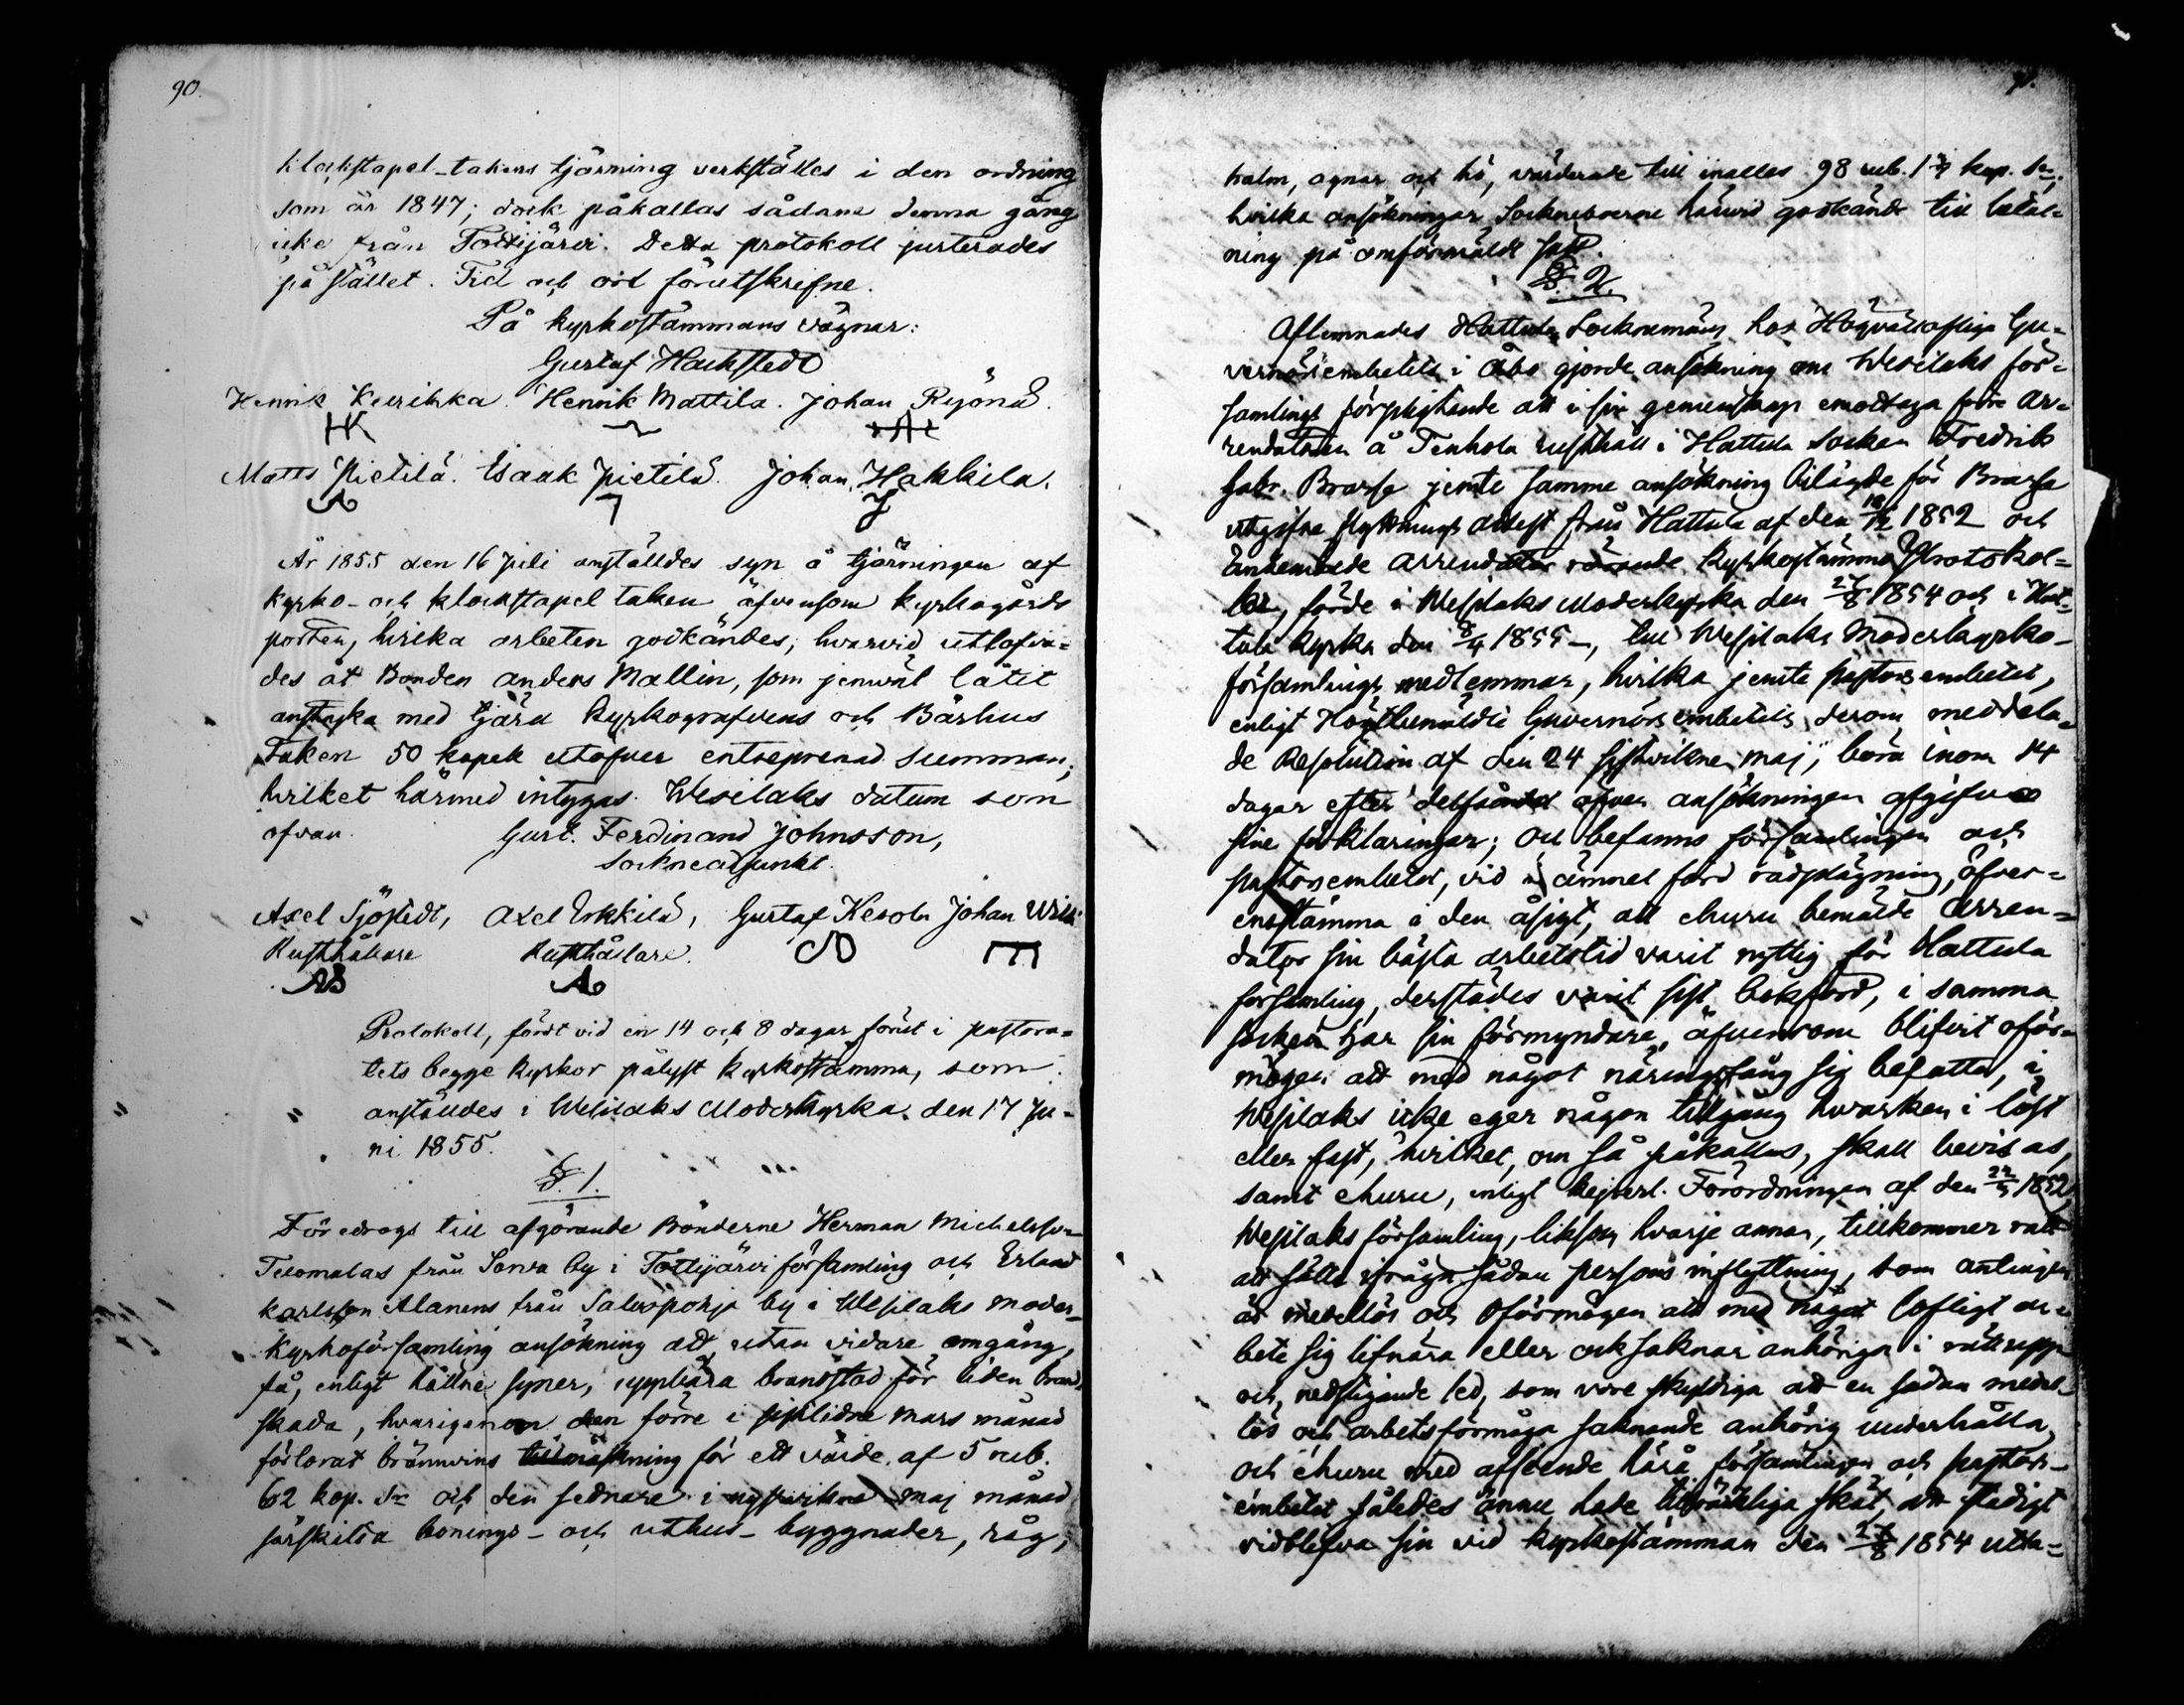 90.
klockstapel-takens tjärning verkställes i den ordning
som år 1847; dock påkallas sådane denna gång
icke från Tottijärvi. Detta protokoll justerades
på stället. Tid och ort förutskrifne.
På kyrkostämmans vägnar:
Gustaf Hackstedt
Henrik Keirikka. Henrik Mattila. Johan Pryönä.
HK
Matts Pietilä. Isaak Pietilä. Johan Hakkila.
År 1855 den 16 Juli anställdes syn å tjärningen af
kyrko- och klockstapel taken äfvensom kyrkogårds
porten, hvilka arbeten godkändes; hvarvid utlofva=
des åt Bonden Anders Mallin, som jemväl låtit
anstryka med tjära kyrkografvens och Bårhus
taken 50 kopek utöfver entreprenad summan;
hvilket härmed intygas. Wesilaks datum som
ofvan. Gust. Ferdinand Johnsson,
Sockneadjunkt.
Axel Sjöstedt, Axel Erkkilä, Gustaf Kesola Johan
Rusthållare Rusthållare.
Protokoll, fördt vid en 14 och 8 dagar förut i pastora=
tets begge kyrkor pålyst kyrkostämma, som
anställdes i Wesilaks Moderkyrka den 17 Ju=
ni 1855.
§. 1.
Föredrogs till afgörande Bönderne Herman Michelsson
från Sorva by i Tottijärvi församling och Erland
Karlsson Alanens från Salvopohja by i Wesilaks moder-
kyrkoförsamling ansökning att, utan vidare omgång,
få, enligt hållne syner, uppbära brandstod för liden brand-
skada, hvarigenom den förre i sistlidne Mars månad
förlorat brännvins för ett värde af 5 rub.
62 kop. S:r och den sednare i Maj månad
särskilda bonings- och uthus-byggnader, råg,
91.
halm, agnar och hö, värderade till inalles 98 rub. kop. S:r;
hvilka ansökningar Socknebоerne härvid godkände till betal=
ning på omförmäldt sätt.
§. 2.
Aflemnades Hattula Socknemäns hos Högvällofliga Gu=
vernörsembetet i Åbo gjorde ansökning om Wesilaks för=
samlings förpligtande att i sin gemenskap emottaga förre Ar=
rendatorn å Tenhola rusthåll i Hattula Socken Fredrik
Gabr. Brasse jemte samme ansökning bilagde för Brasse
utgifne flyttnings attest från Hattula af den 1852 och
arrendator rörande kyrkostämma Protokol=
ler, förde i Wesilaks Moderkyrka den 27/8 1854 och i Hat=
tula kyrka den 8/4 1855 -, till Wesilaks Moderkyrko-
församlings medlemmar, hvilka jemte pastorsembetet,
enligt Högtbemäldte Guvernörsembetets derom meddela=
de Resolution af den 24 sistvikne Maj, böra inom 14
dagar efter öfver ansökningen afgifva
sine förklaringar; och befanns församlingen och
pastorsembetet, vid i ämnet förd rådplägning, öfver=
ensstämma i den åsigt, att churu bemälde Arren=
dator sin bästa arbetstid varit nyttig för Hattula
församling, derstädes varit sist bokförd, i samma
socken har sin förmyndare, äfvensom blifvit oför=
mögen att med något näringsfång sig befatta, i
Wesilaks icke eger någon tillgång hvarken i löst
eller fast, hvilket, om så påkallas, skall bevisas,
samt churu, enligt Kejserl. Förordningen af den 1852,
Wesilaks församling, liksom hvarje annan, tillkommer rätt
att sådan persons inflyttning, som antingen
är medellös och oförmögen att med något lofligt ar=
bete sig lifnära eller ock saknar anhöriga i rätt upp
och nedstigande led, som vore skyldiga att en sådan medel-
lös och arbetsförmåga saknande anhörig underhålla,
och churu med afseende härå församlingen och pastors-
embetet således ännu hade tillräckliga skäl att stadigt
vidblifva sin vid kyrkostämman den 27/8 1854 utta=